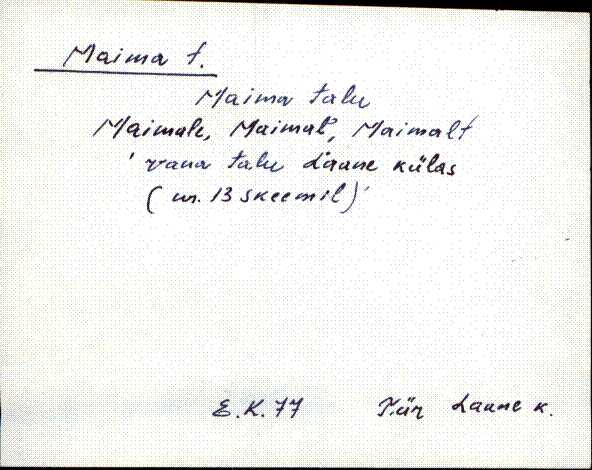 Maima t.
Maima talu
Maimale, Maimal, Maimalt
' vana talu Laane külas
( nr. 13 skeemil)'
E.K. 77 Tür Laane k.